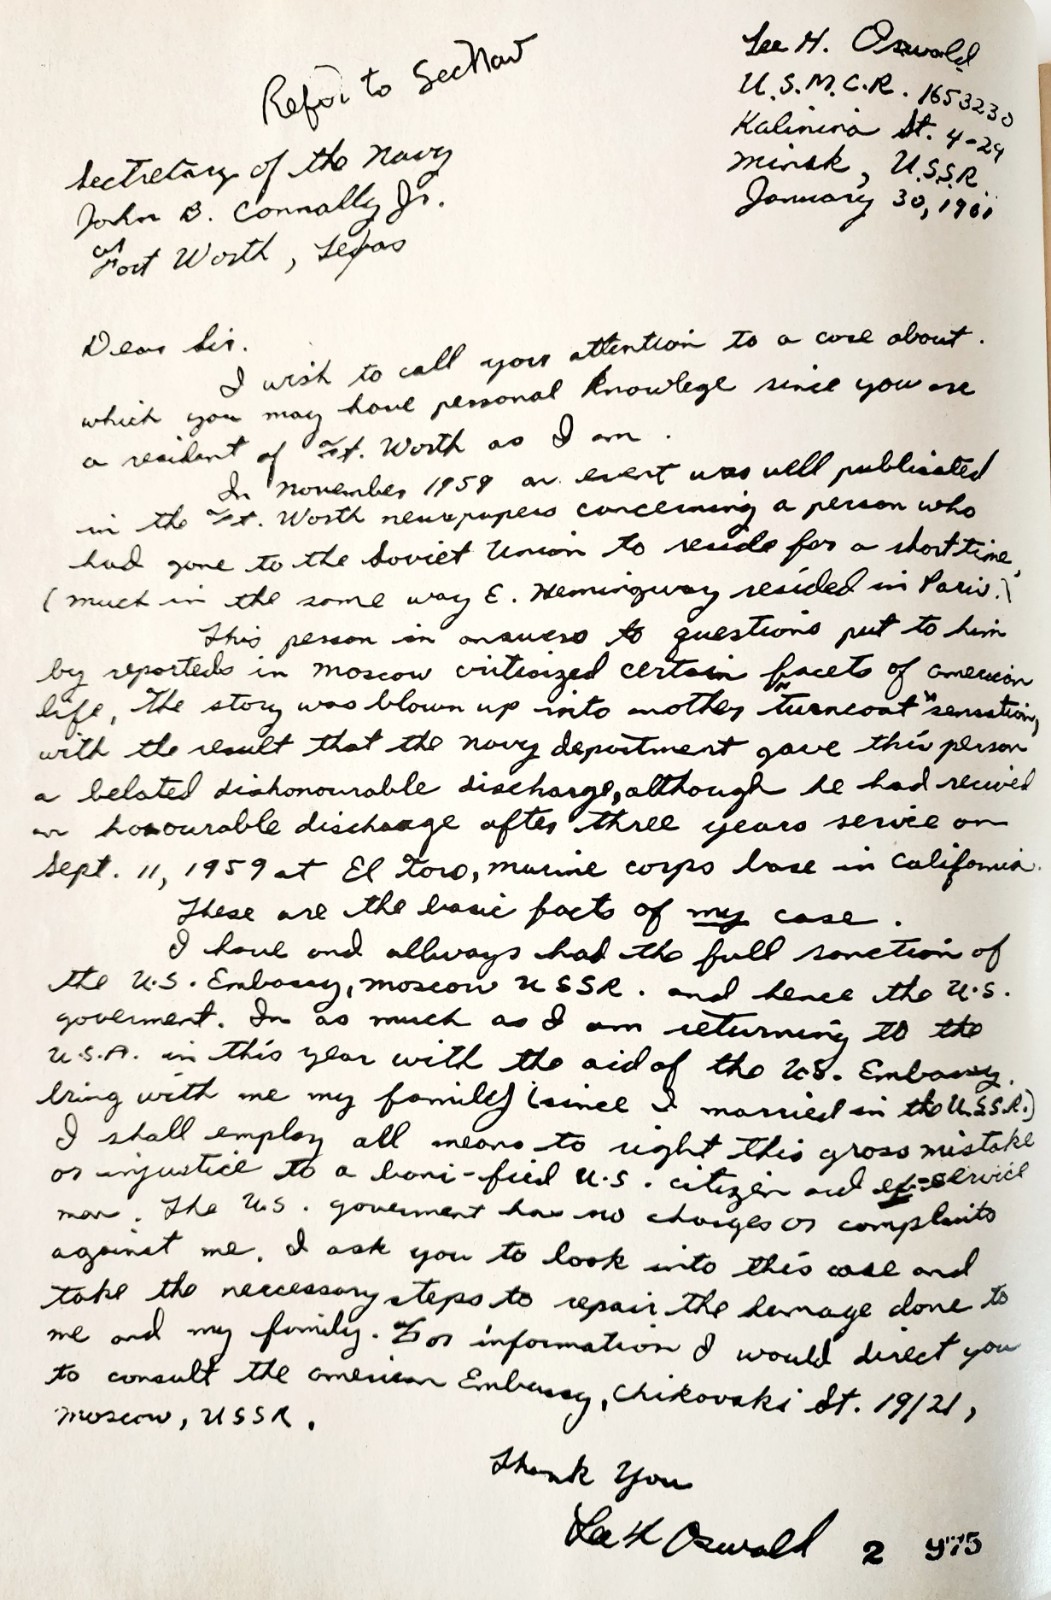 Refer to SecNav
Lee H. Oswald
U.S.M.C.R. 1653230
Kalinina St. 4-24
Minsk, U.S.S.R.
January 30, 1961
Secretary of the Navy
John B. Connally Jr.
Fort Worth, Texas
Dear Sir.
I wish to call your attention to a case about.
which you may have personal knowlege since you are
a resident of Ft. Worth as I am.
In november 1959 an event was well publicated
in the Ft. Worth newspapers concerning a person who
had gone to the Soviet Union to reside for a short time,
(much in the same way E. Hemingway resided in Paris.)
This person in answers to questions put to him
by reporteds in moscow criticized certain facets of american
life, the story was blown up into another "turncoat" sensation,
with the result that the navy department gave this person
a belated dishonourable discharge, although he had recived
an honourable discharge after three years service on
Sept. 11, 1959 at El Toro, marine corps base in California.
These are the basic facts of my case.
I have and allways had the full sanction of
the U.S. Embassy, moscow USSR. and hence the U.S.
goverment. In as much as I am returning to the
U.S.A. in this year with the aid of the U.S. Embassy.
bring with me my family (since I married in the U.S.S.R.)
I shall employ all means to right this gross mistake
or injustice to a boni-fied U.S. citizen and ex-service
man. The U.S. goverment has no charges or complaints
against me. I ask you to look into this case and
take the neccessary steps to repair the damage done to
me and my family. For information I would direct you
to consult the american Embassy, Chikovski St. 19/21,
moscow, USSR.
Thank You
Lee H Oswald
2 975